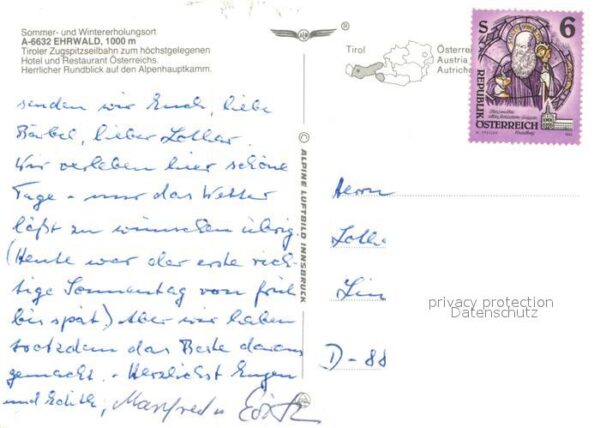 Sommer- und Wintererholungsort
A-6632 EHRWALD, 1000 m
Tiroler Zugspitzseilbahn zum höchstgelegenen
Hotel und Restaurant Österreichs.
Herrlicher Rundblick auf den Alpenhauptkamm.
senden wir Euch, liebe
Bärbel, lieber Lothar.
Wir verleben hier schöne
Tage - nur das Wetter
läßt zu wünschen übrig.
(Heute war der erste rich-
tige Sonnentag von früh
bis spät) Aber wir haben
trotzdem das Beste daraus
gemacht. - Herzlichst Eugen
und Edith, Manfred u
© ALPINE LUFTBILD INNSBRUCK
®
Tirol
Österreich
Austria
Autriche
S 6
REPUBLIK
ÖSTERREICH
Herrn
Loth
Lin
D-88
privacy protection
Datenschutz